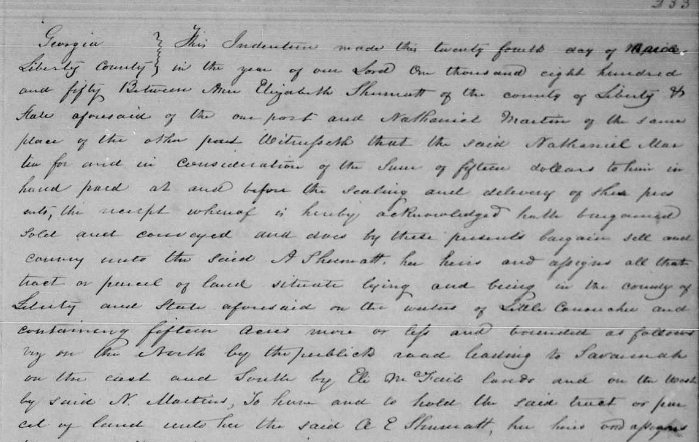 333
Georgia } This Indenture made this twenty fourth day of March
Liberty County } in the year of our Lord One thousand eight hundred
and fifty Between Ann Elizabeth Shumatt of the county of Liberty &
State aforesaid of the one part and Nathaniel Martin of the same
place of the other part Witnesseth that the said Nathaniel Mar
tin for and in Consideration of the Sum of fifteen dollars to him in
hand paid at and before the sealing and delivery of these pres
ents, the receipt whereof is hereby acknowledged hath bargained
sold and conveyed and does by these presents bargain sell and
convey unto the said A Shumatt, her heirs and assigns all that
tract or parcel of land situate lying and being in the county of
Liberty and State aforesaid on the waters of Little Canouchee and
containing fifteen Acres more or less and bounded as follows
viz on the North by the publick road leading to Savannah
on the east and South by Eli McFails lands and on the West
by said N. Martins, To have and to hold the said tract or par
cel of land unto her the said A E Shumatt, her heirs and assigns